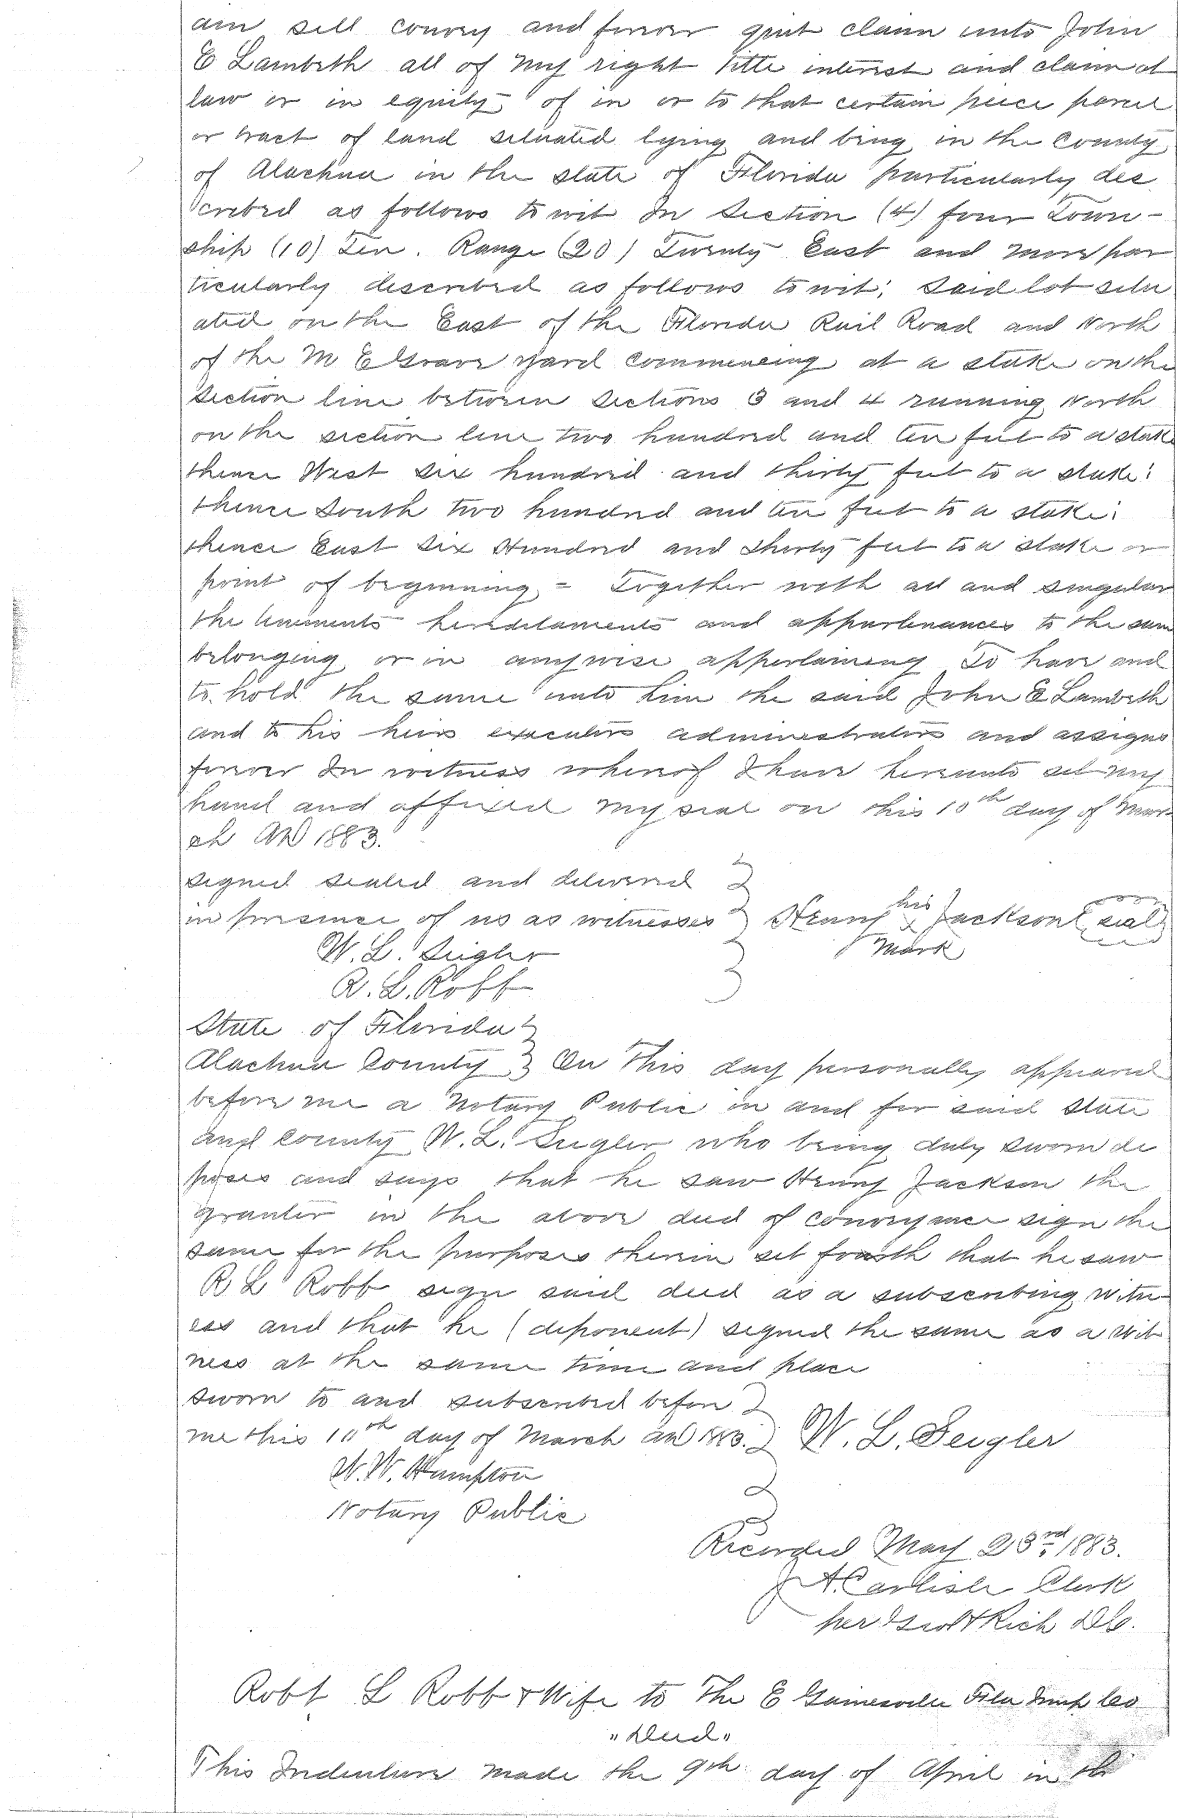 aim sell convey and forever quit claim unto John
E Lambeth all of my right title interest and claim at
law or in equity of in or to that certain peice parcel
or tract of land situated lying and being in the County
of Alachua in the state of Florida particularly des
cribed as follows to wit In Section (4) four Town-
ship (10) Ten. Range (20) Twenty East and more par
ticularly described as follows to wit; Said lot situ
ated on the East of the Florida Rail Road and North
of the M E Grave yard commencing at a stake on the
Section line between Sections 3 and 4 running North
on the section line two hundred and ten feet to a stake
thence West six hundred and thirty feet to a stake;
thence South two hundred and ten feet to a stake;
thence East Six Hundred and thirty feet to a stake or
point of beginning = Together with all and singular
the tenements hereditaments and appurtenances to the same
belonging or in anywise appertaining To have and
to hold the same unto him the said John E Lambeth
and to his heirs executors administrators and assigns
forever In witness whereof I have hereunto set my
hand and affixed my seal on this 10th day of Mar-
ch AD 1883.
signed sealed and delivered
in presence of us as witnesses Henry his x Jackson (seal)
Mark
W. L. Seigler
R. L. Robb
State of Florida
Alachua County } On This day personally appeared
before me a Notary Public in and for said state
and county W. L. Seigler who being duly sworn de
poses and says that he saw Henry Jackson the
grantor in the above deed of conveyance sign the
same for the purposes therein set fourth that he saw
R L Robb sign said deed as a subscribing witn-
ess and that he (deponent) signed the same as a wit
ness at the same time and place
sworn to and subscribed before
me this 10th day of March AD 1883. W. L. Seigler
W. W. Hampton
Notary Public
Recorded May 23rd, 1883.
J A. Carlisle Clerk
per H Rich D.C.
Robt L Robb & Wife to The E Gainesville Fla Imp Co
"Deed"
This Indenture made the 9th day of April in the